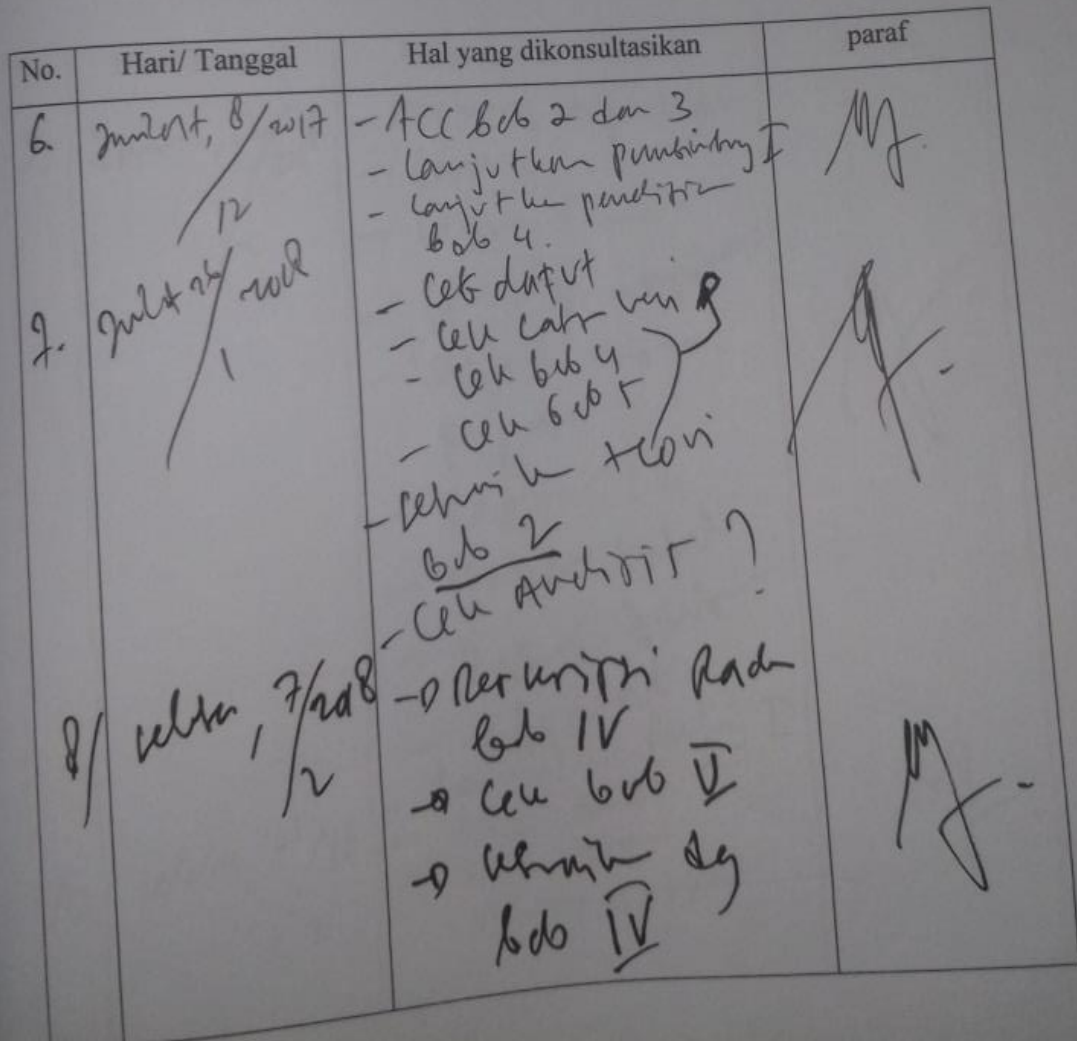 No. Hari/ Tanggal Hal yang dikonsultasikan paraf
6. Jum'at, 8/12 2017 - ACC bab 2 dan 3
- Lanjutkan pembimbing I
- Lanjutkan penelitian
bab 4.
7. Jum'at 26/1 2018 - Cek
- Cek
- Cek bab 4
- Cek bab 5
- teori
bab 2
- Cek Analisis ?
8/ 7/2 2018 → Deskripsi Pada
bab IV
→ Cek bab V
→ dg
bab IV